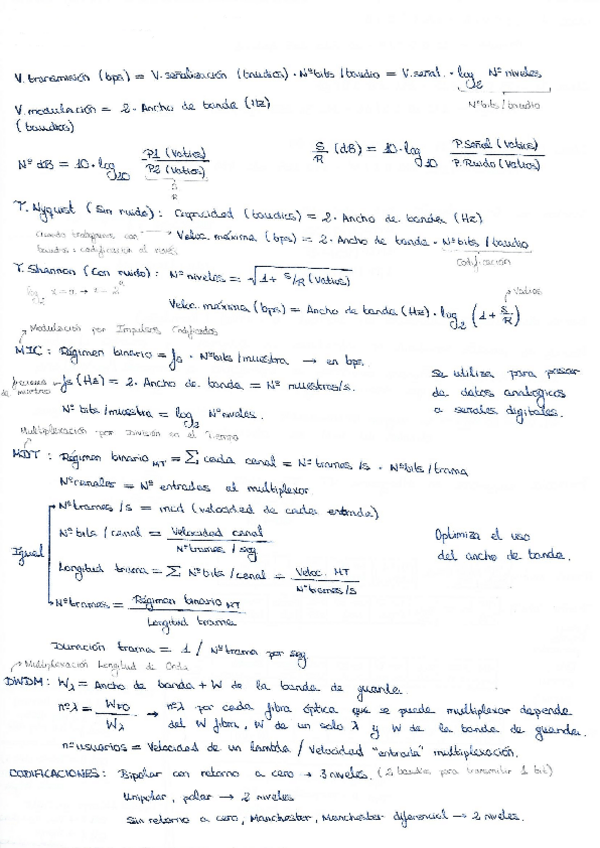 V. transmisión (bps) = V. señalización (baudios) · Nº bits / baudio = V. señal. · log₂ Nº niveles
Nº bits / baudio
V. modulación = 2 · Ancho de banda (Hz)
(baudios)
Nº dB = 10 · log₁₀ P1 (Vatios) / P2 (Vatios)
S/R (dB) = 10 · log₁₀ P. Señal (Vatios) / P. Ruido (Vatios)
S
R
T. Nyquist (Sin ruido): Capacidad (baudios) = 2 · Ancho de banda (Hz)
Cuando trabajamos con
baudios: codificación al nivel
→ Veloc. máxima (bps) = 2 · Ancho de banda · Nº bits / baudio
Codificación
T. Shannon (Con ruido): Nº niveles = √1 + S/R (Vatios)
→ Vatios
Veloc. máxima (bps) = Ancho de banda (Hz) · log₂ (1 + S/R)
→ Modulación por Impulsos Codificados
MIC: Régimen binario = fs · Nº bits / muestra → en bps.
frecuencia de muestreo ← fs (Hz) = 2 · Ancho de banda = Nº muestras/s.
Nº bits / muestra = log₂ Nº niveles.
Se utiliza para pasar
de datos analógicos
a señales digitales.
Multiplexación por División en el Tiempo
MDT: Régimen binario MT = Σ cada canal = Nº tramas /s · Nº bits / trama
Nº canales = Nº entradas al multiplexor
Igual
Nº tramas /s = mcd (velocidad de cada entrada)
Nº bits / canal = Velocidad canal / Nº tramas / seg
Longitud trama = Σ Nº bits / canal = Veloc. MT / Nº tramas/s
Nº tramas = Régimen binario MT / Longitud trama
Optimiza el uso
del ancho de banda.
Duración trama = 1 / Nº trama por seg
→ Multiplexación Longitud de Onda
DWDM: Wλ = Ancho de banda + W de la banda de guarda.
nº λ = W FO / Wλ → nº λ por cada fibra óptica que se puede multiplexar depende
del W fibra, W de un solo λ y W de la banda de guarda.
nº usuarios = Velocidad de un lambda / Velocidad "entrada" multiplexación.
CODIFICACIONES: Bipolar con retorno a cero → 3 niveles. (2 baudios para transmitir 1 bit)
Unipolar, polar → 2 niveles
Sin retorno a cero, Manchester, Manchester diferencial → 2 niveles.